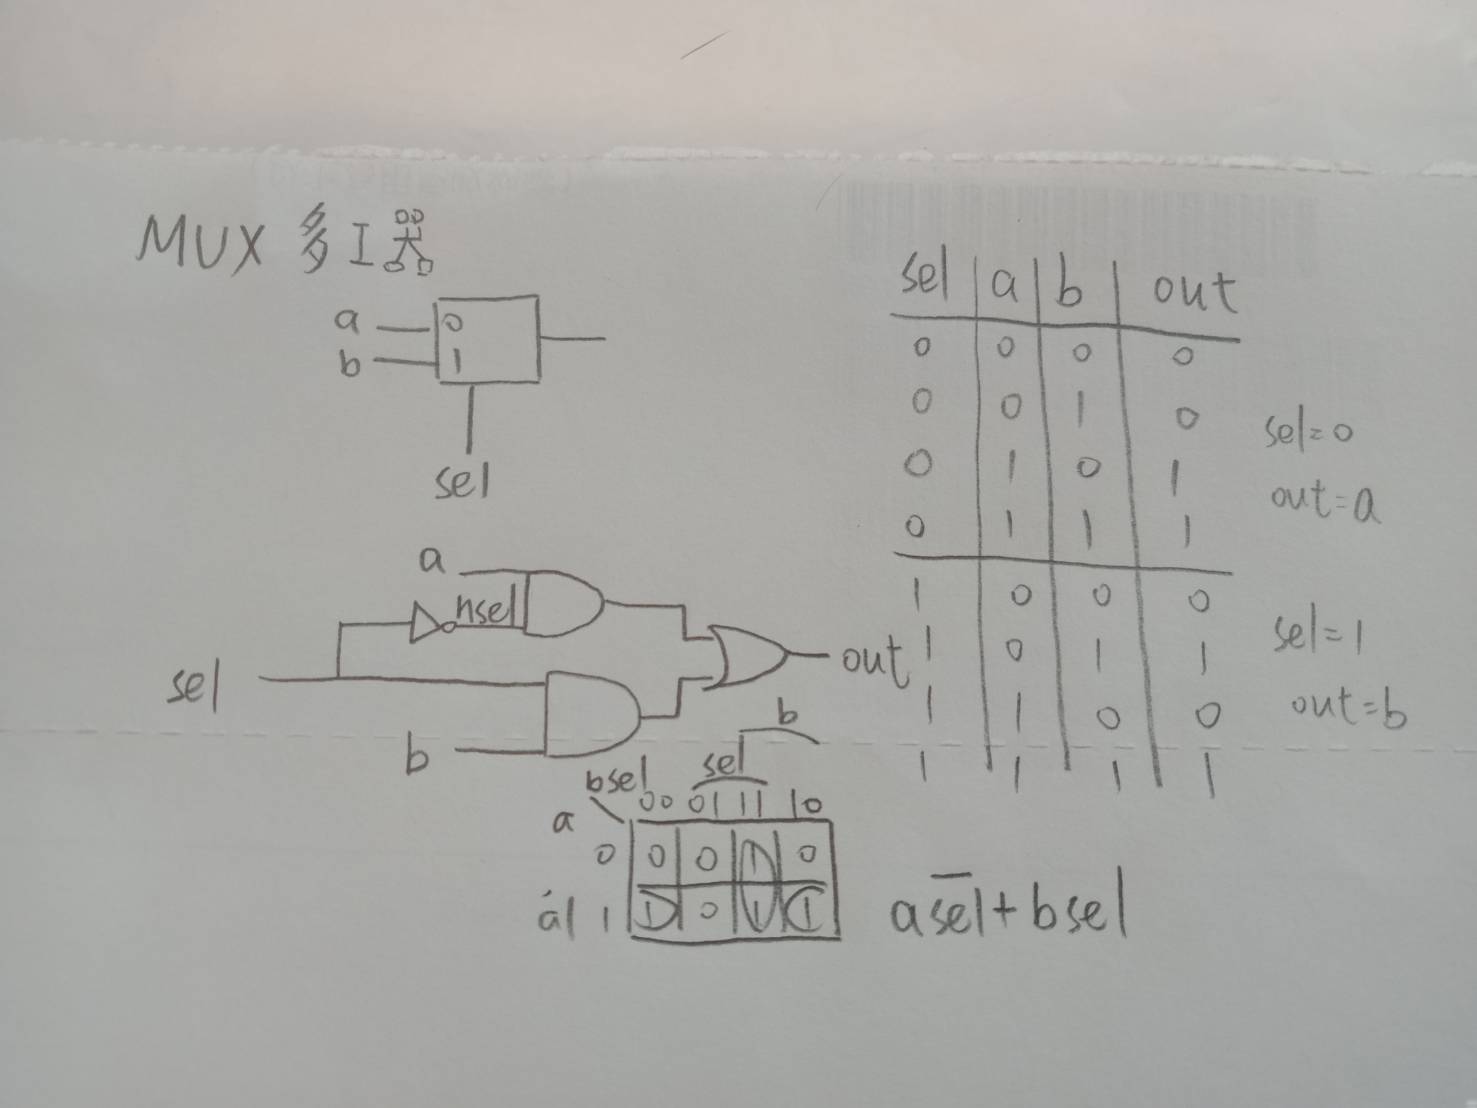 MUX 多工器
a 0
b 1
sel
a
nsel
sel
out
b
sel a b out
0 0 0 0
0 0 1 0
0 1 0 1
0 1 1 1
1 0 0 0
1 0 1 1
1 1 0 0
1 1 1 1
sel=0
out=a
sel=1
out=b
b
bsel sel
a 00 01 11 10
0 0 0 1 0
a| 1 1 0 1 1
a s̅e̅l̅ + b sel